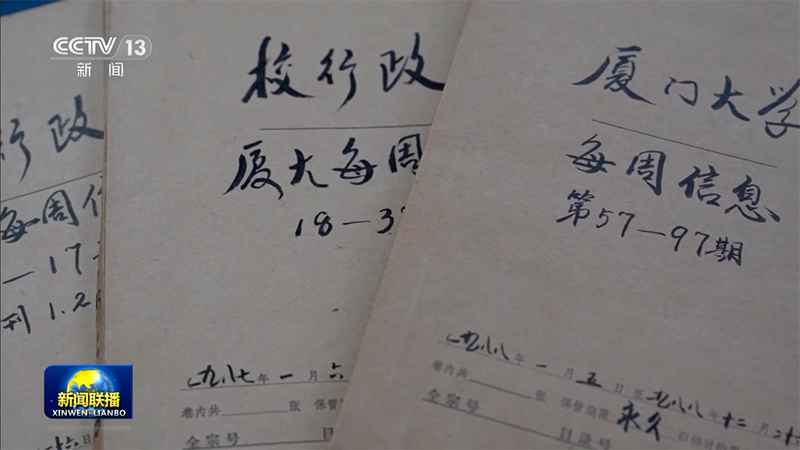 CCTV 13
新闻
行政
每周信
一17
刊 1.2
校行政
厦大每周
18—3
一九八七年一月六
卷内共 张 保管期
全宗号
厦门大学
每周信息
第57—97期
一九八八年一月五日至一九八八年十二月二十
卷内共 张 保管期限 永久
全宗号 目录号
新闻联播
XINWEN LIANBO